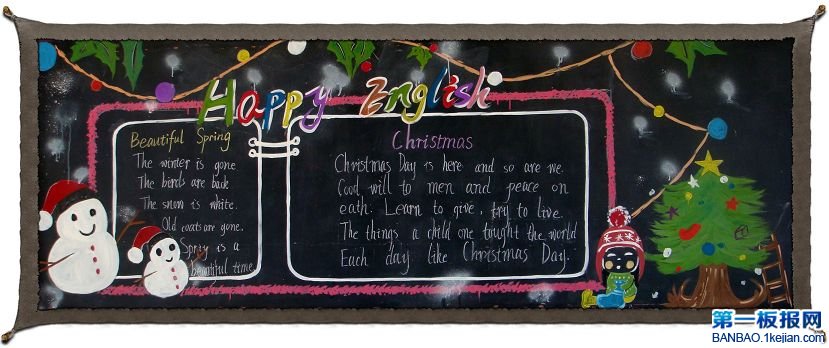 Happy English
Beautiful Spring
The winter is gone
The birds are back
The snow is white.
Old coats are gone.
Spriy is a
beautiful time
Christmas
Christmas Day is here and so are we.
Good will to men and peace on
eath. Learn to give, try to live.
The things a child one tought the world
Each day like Christmas Day.
第一板报网
BANBAO.1kejian.com